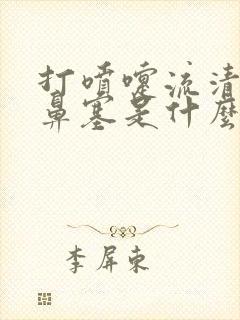 打喷嚏流清
鼻塞是什麼
李屏東